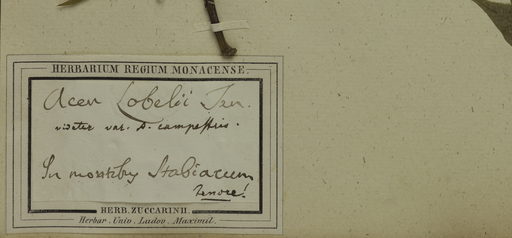 HERBARIUM REGIUM MONACENSE.
Acer Lobelii Ten.
videtur var. A. campestris.
In montibus Stabiarum
Tenore!
HERB. ZUCCARINII.
Herbar. Univ. Ludov. Maximil.